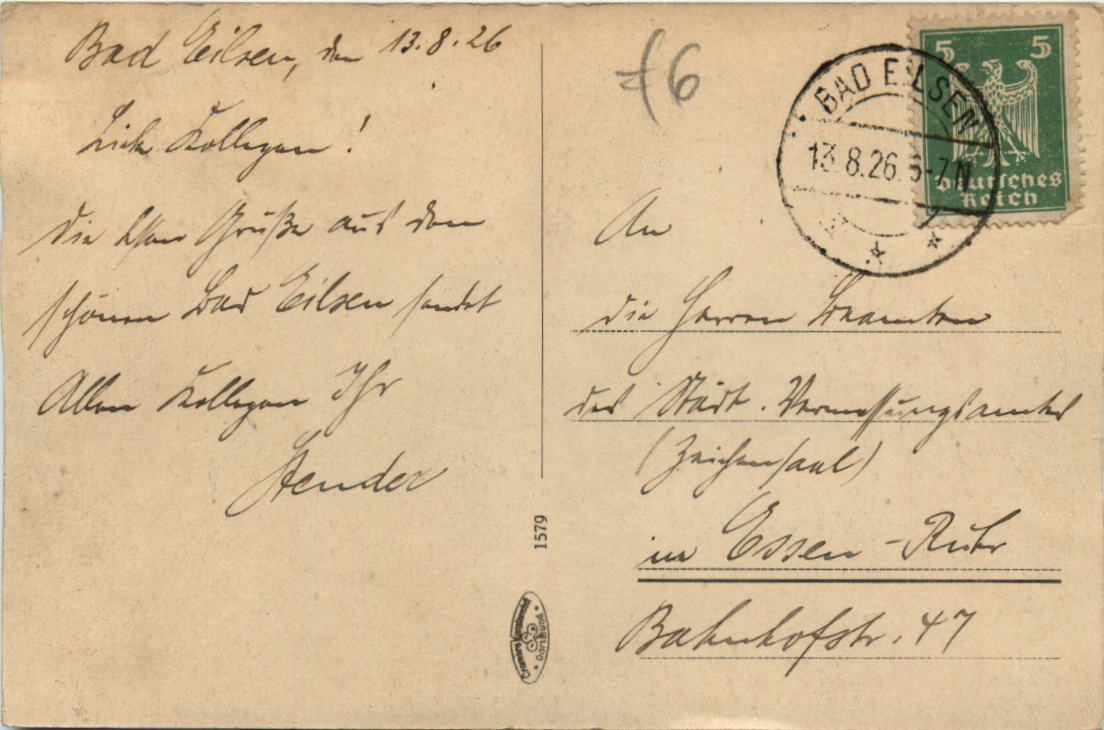 Bad Eilsen, den 13.8.26
Liebe Kollegen!
die besten Grüße aus dem
schönen Bad Eilsen sendet
Allen Kollegen Ihr
Stender
6
BAD EILSEN
13.8.26.6-7N
5 5
Deutsches
Reich
An
die Herren Beamten
des Städt. Vermessungsamtes
(Zeichensaal)
in Essen-Ruhr
Bahnhofstr. 47
1579